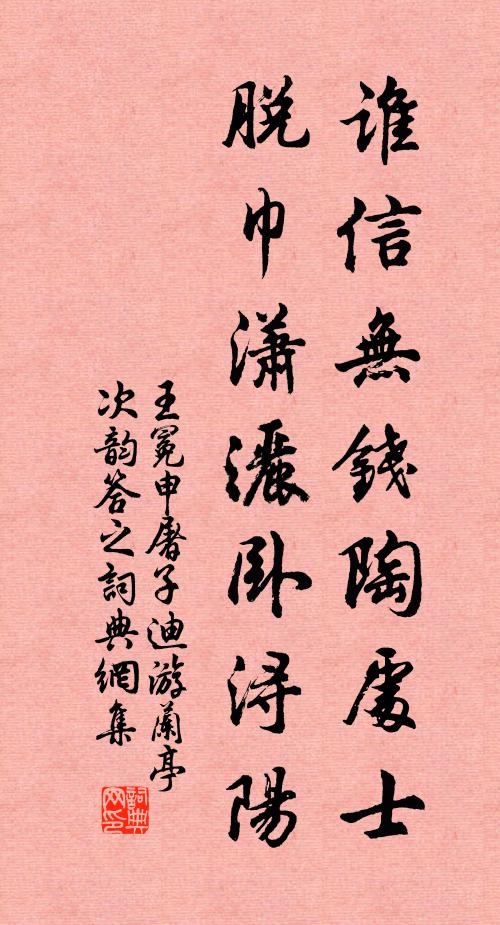 誰信無錢陶處士
脱巾瀟灑卧潯陽
王冕申屠子迪游蘭亭
次韵答之詞典網集
詞典
网印